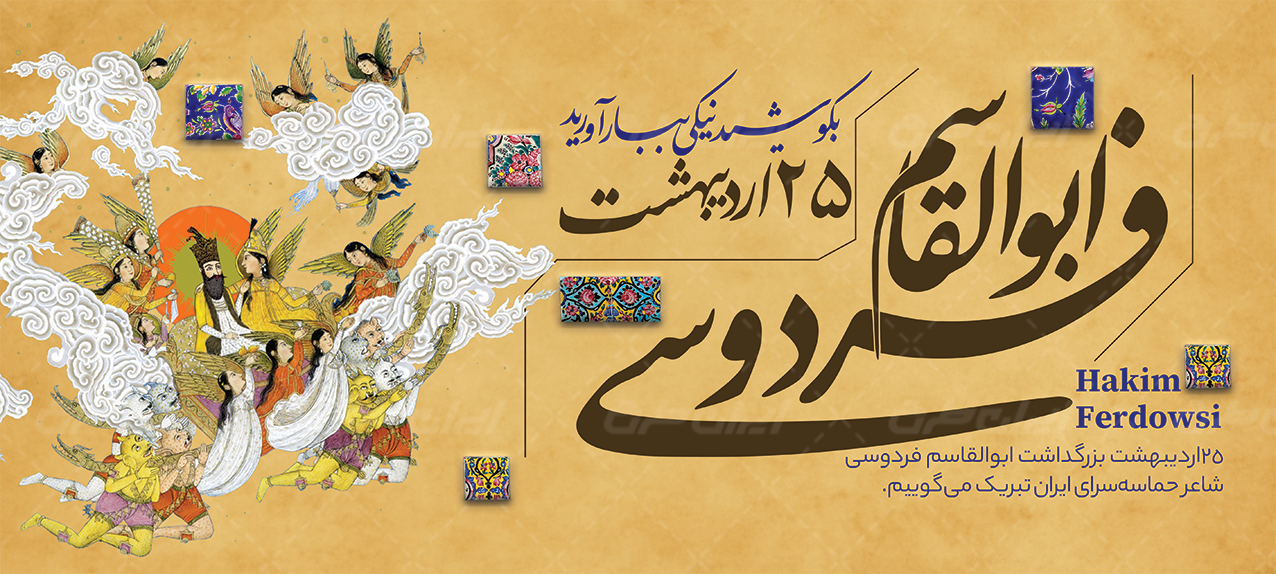 ابوالقاسم
فردوسی
بکوشید نیکی بهار آورید
۲۵ اردیبهشت
Hakim
Ferdowsi
۲۵اردیبهشت بزرگداشت ابوالقاسم فردوسی
شاعر حماسه‌سرای ایران تبریک می‌گوییم.